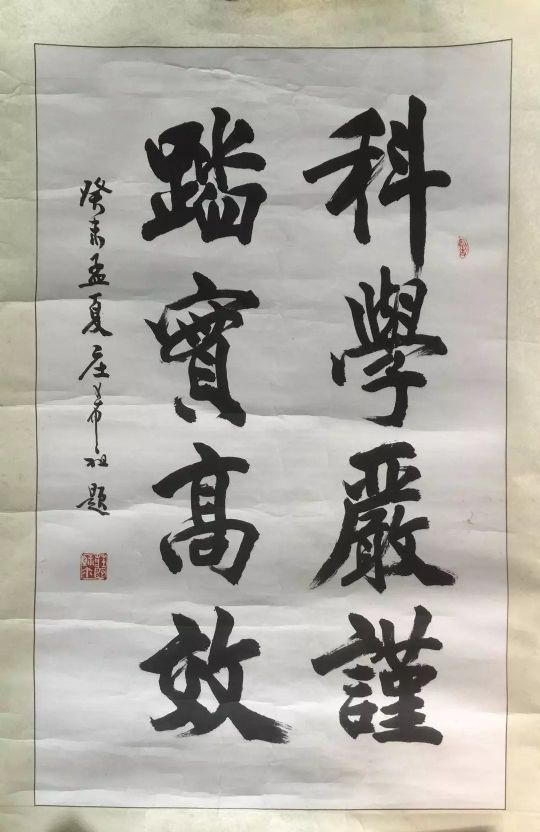 科學嚴謹
踏實高效
癸未孟夏庄希祖題